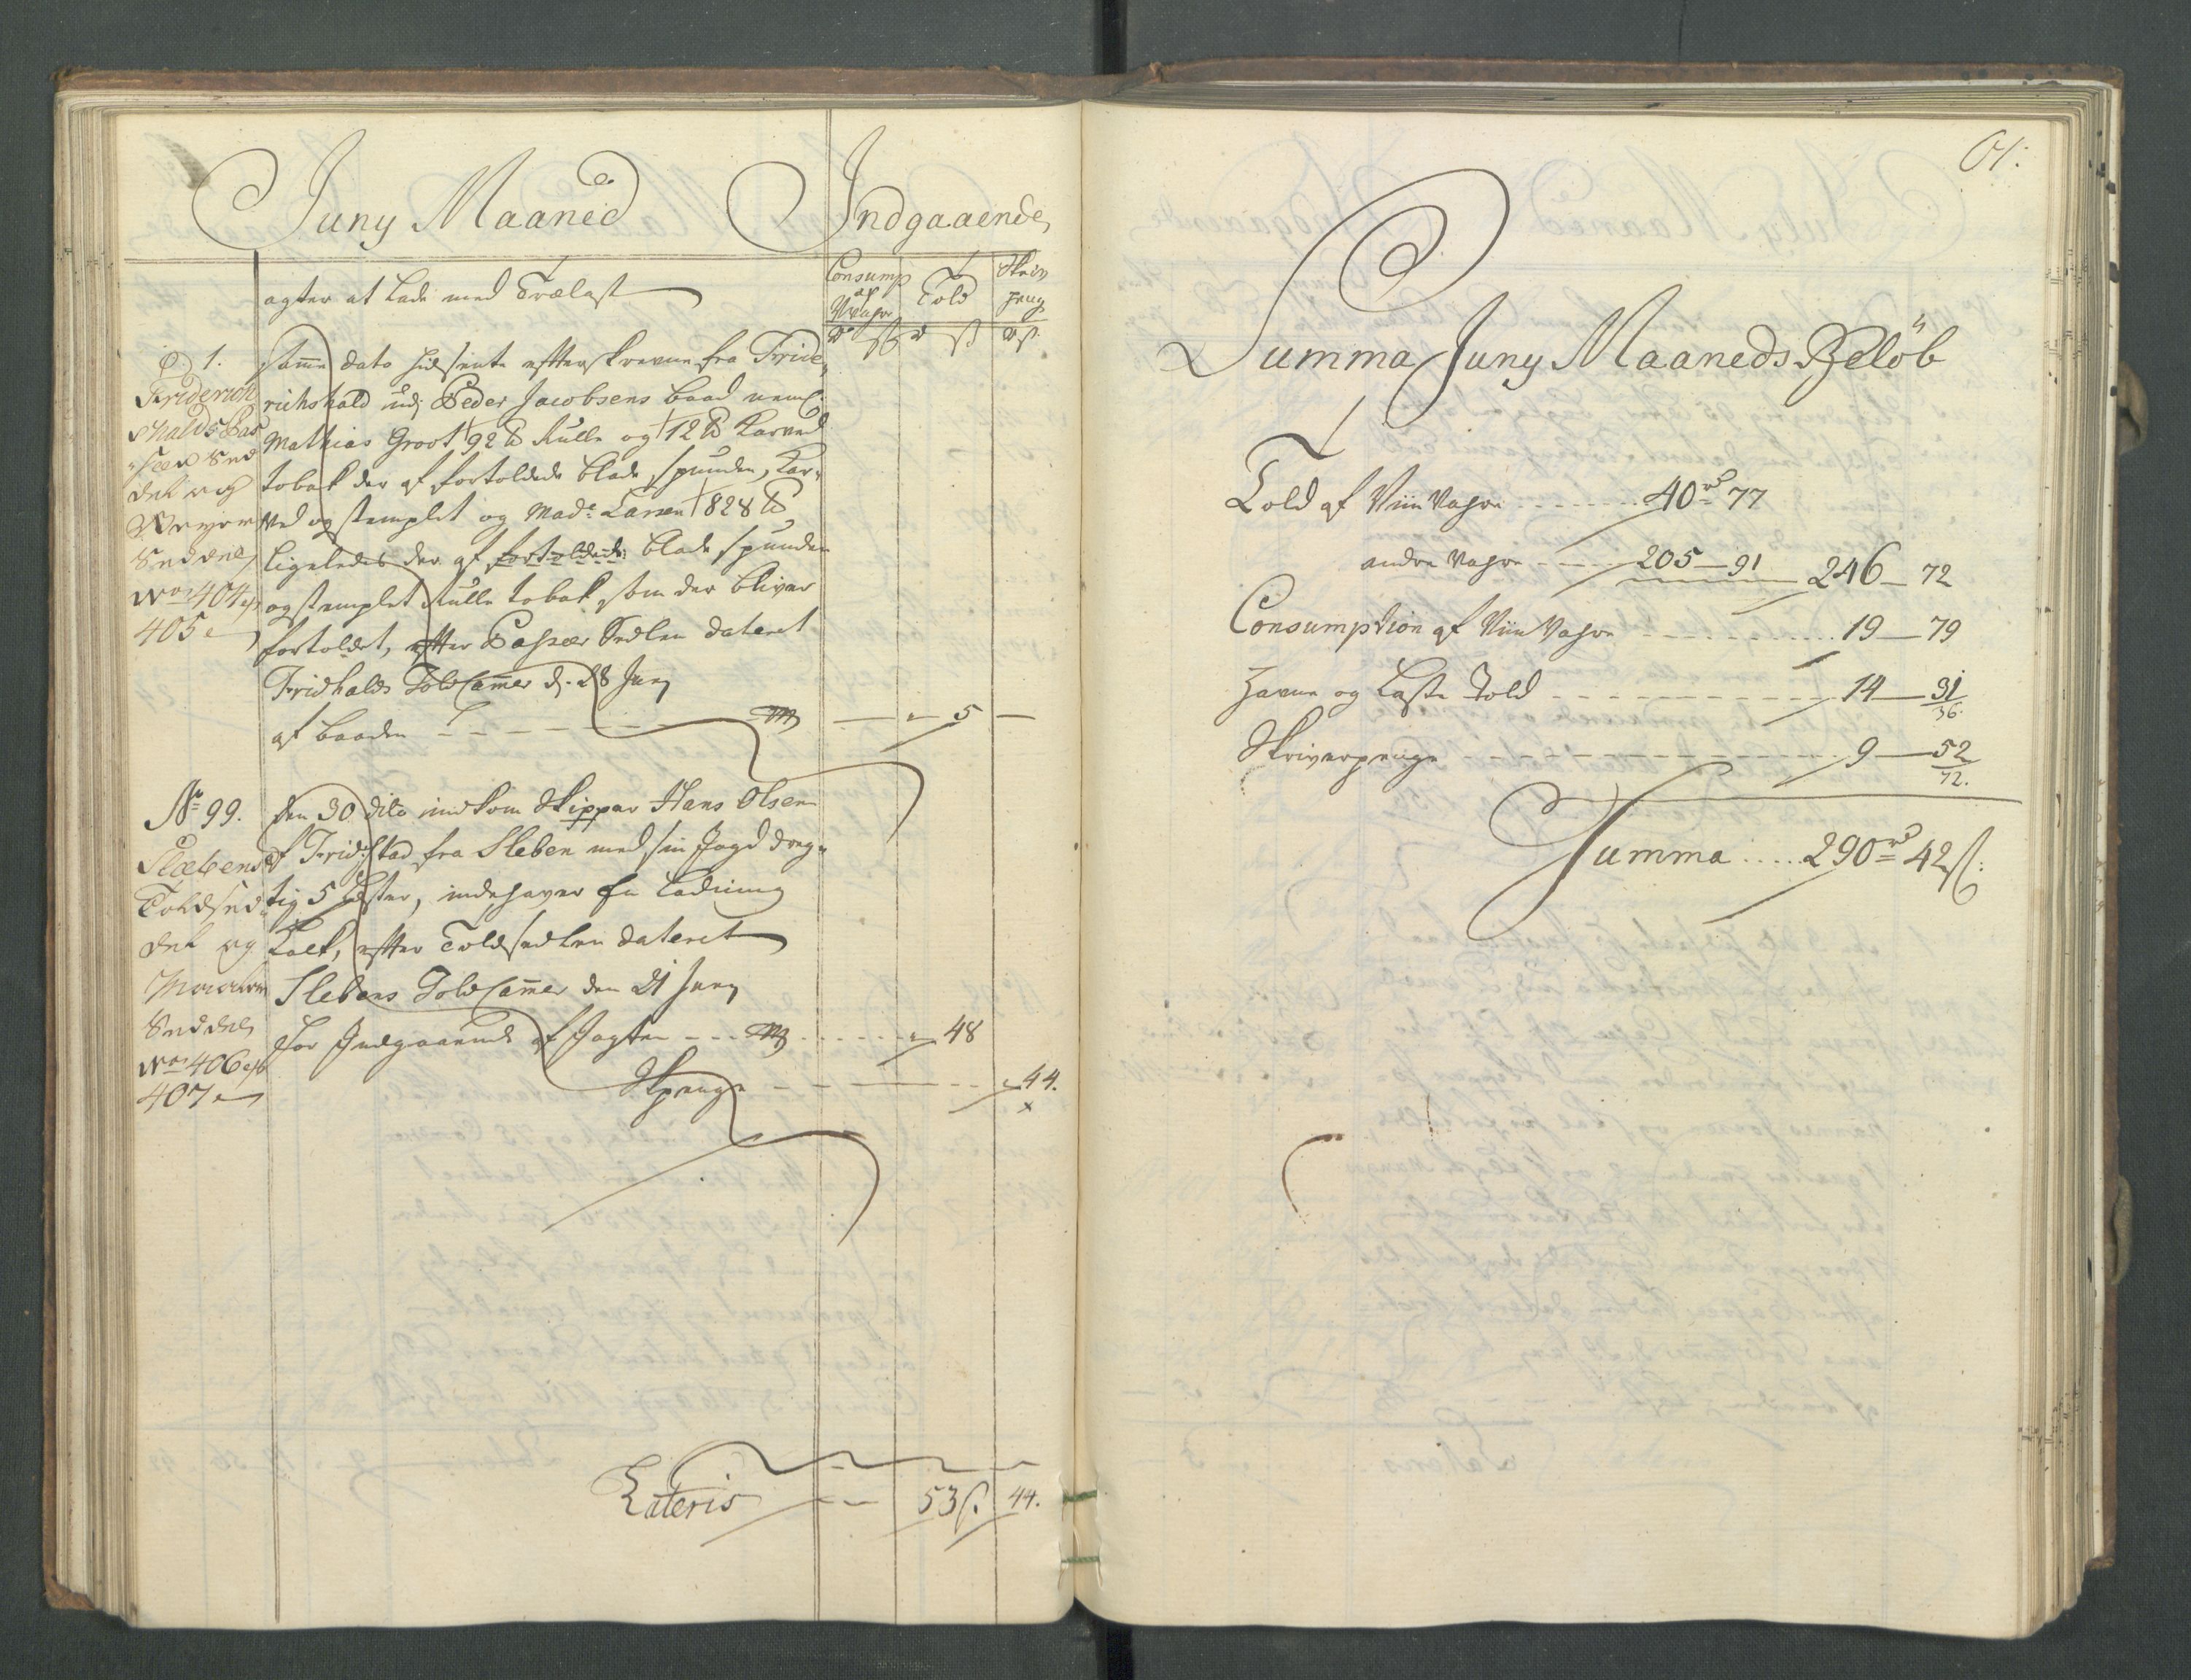 Juny Maaned Indgaaende
Consump
af
Vahre
Told
Skriv
penge
agter at lade med Trælast
1.
Friderich
shalds Pas
seer Sed
del og
Sedden
No 404 et
405
samme dato hidsente efterskrevne fra Fride
richshald udj Peder Jacobsens baad neml.
Mathias Groot 92 ℔ Rulle og 12 ℔ Karved
tobak der af fortoldede blade spunden, Kar-
ved og stemplet og Made Larsen 828 ℔
ligeledes der af fortoldede blade spunden
og stemplet Rulle tobak, som der bliver
fortoldet, efter Passeer Sedlen dateret
Fridhalds Told Camer d. 28 Juny
af baaden 5
No 99.
Slebens
Toldsed
del og
Sedden
No 406 et
407
den 30 dito indkom Skipper Hans Olsen
af Fridstad fra Sleben med sin Jagd dreg-
tig 5 Læster, indehaver en Ladning
Kalk, efter Toldsedlen dateret
Slebens Told Camer den 21 Juny
for Indgaaende af Jagten 48
Skpenge 44.
Lateris 53 ß. 44.
61.
Summa Juny Maaneds Belöb
Told af Viin Vahre 40 rd 77
andre Vahre 205 - 91 246 - 72
Consumption af Viin Vahre 19 - 79
Havne og Laste Told 14 - 31
36.
Skriverpenge 9 - 52
72.
Summa 290 rd 42 ß.